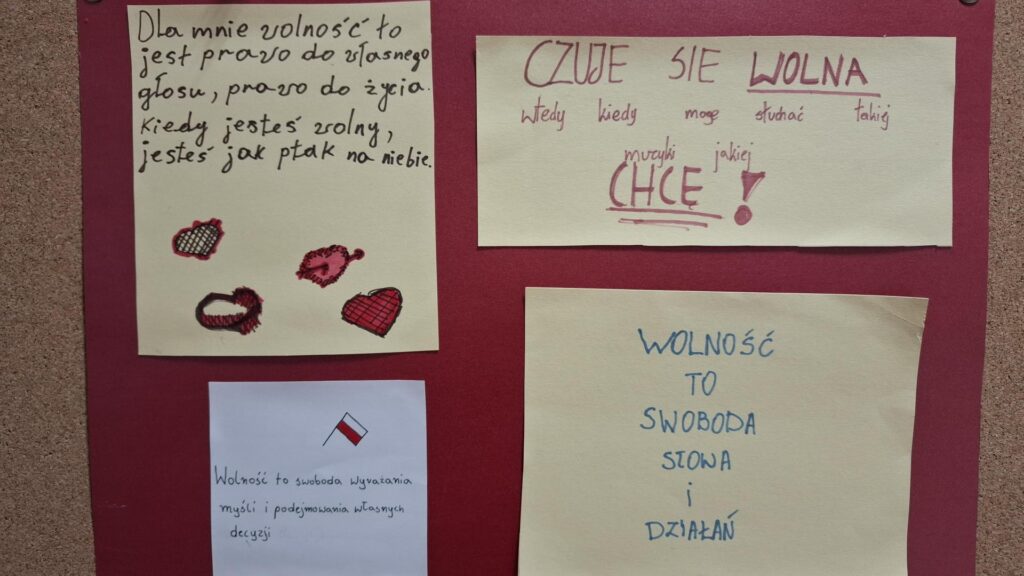 Dla mnie wolność to
jest prawo do własnego
głosu, prawo do życia.
Kiedy jesteś wolny,
jesteś jak ptak na niebie.
CZUJE SIE WOLNA
wtedy kiedy mogę słuchać takiej
muzyki jakiej
CHCĘ !
Wolność to swoboda wyrażania
myśli i podejmowania własnych
decyzji
WOLNOŚĆ
TO
SWOBODA
SŁOWA
i
DZIAŁAŃ